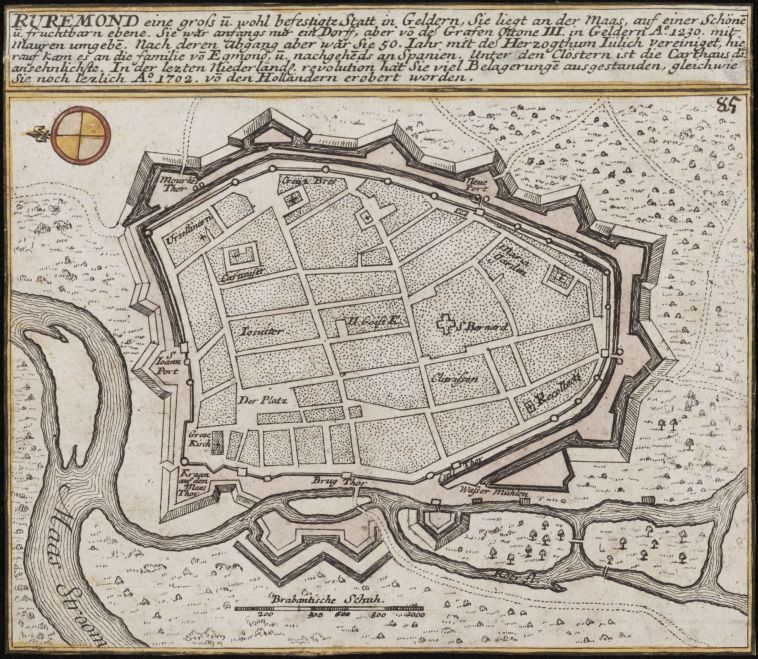 RUREMOND eine groß ū. wohl befestigte Statt in Geldern, Sie liegt an der Maas, auf einer Schöne
ū. fruchtbarn ebene. Sie wär anfangs nŭr ein Dorf, aber vō de Grafen Ottone III. in Geldern Aº. 1230. mit
Mauren umgebē. Nach deren Abgang aber wär Sie 50. Iahr mit de Herzogthum Iulich Vereiniget, hie
rauf kam es an die familie vō Egmond, ū. nachgehēds an Spanien. Unter den Clöstern ist die Carthaus dz
ansehnlichste. In der lezten Niederländ. revolution hat Sie viel Belagerungē ausgestanden, gleichwie
Sie noch lezlich Aº. 1702. vō den Holländern erobert worden.
85
Thor
Neue
Port
Ursullinern
Carteuser
Maria
Iosuiter
H. Geist K.
S. Bernard
S.
Ioann
Port
Clarassen
Der Platz
Recollecti
Grote
Kirch
Kraan
auf den
Maas
Thor
Brug Thor
Thor
Waßer Mühlen
Maas Stroom
Roer fl.
Brabantische Schuh.
200 600 800 1000